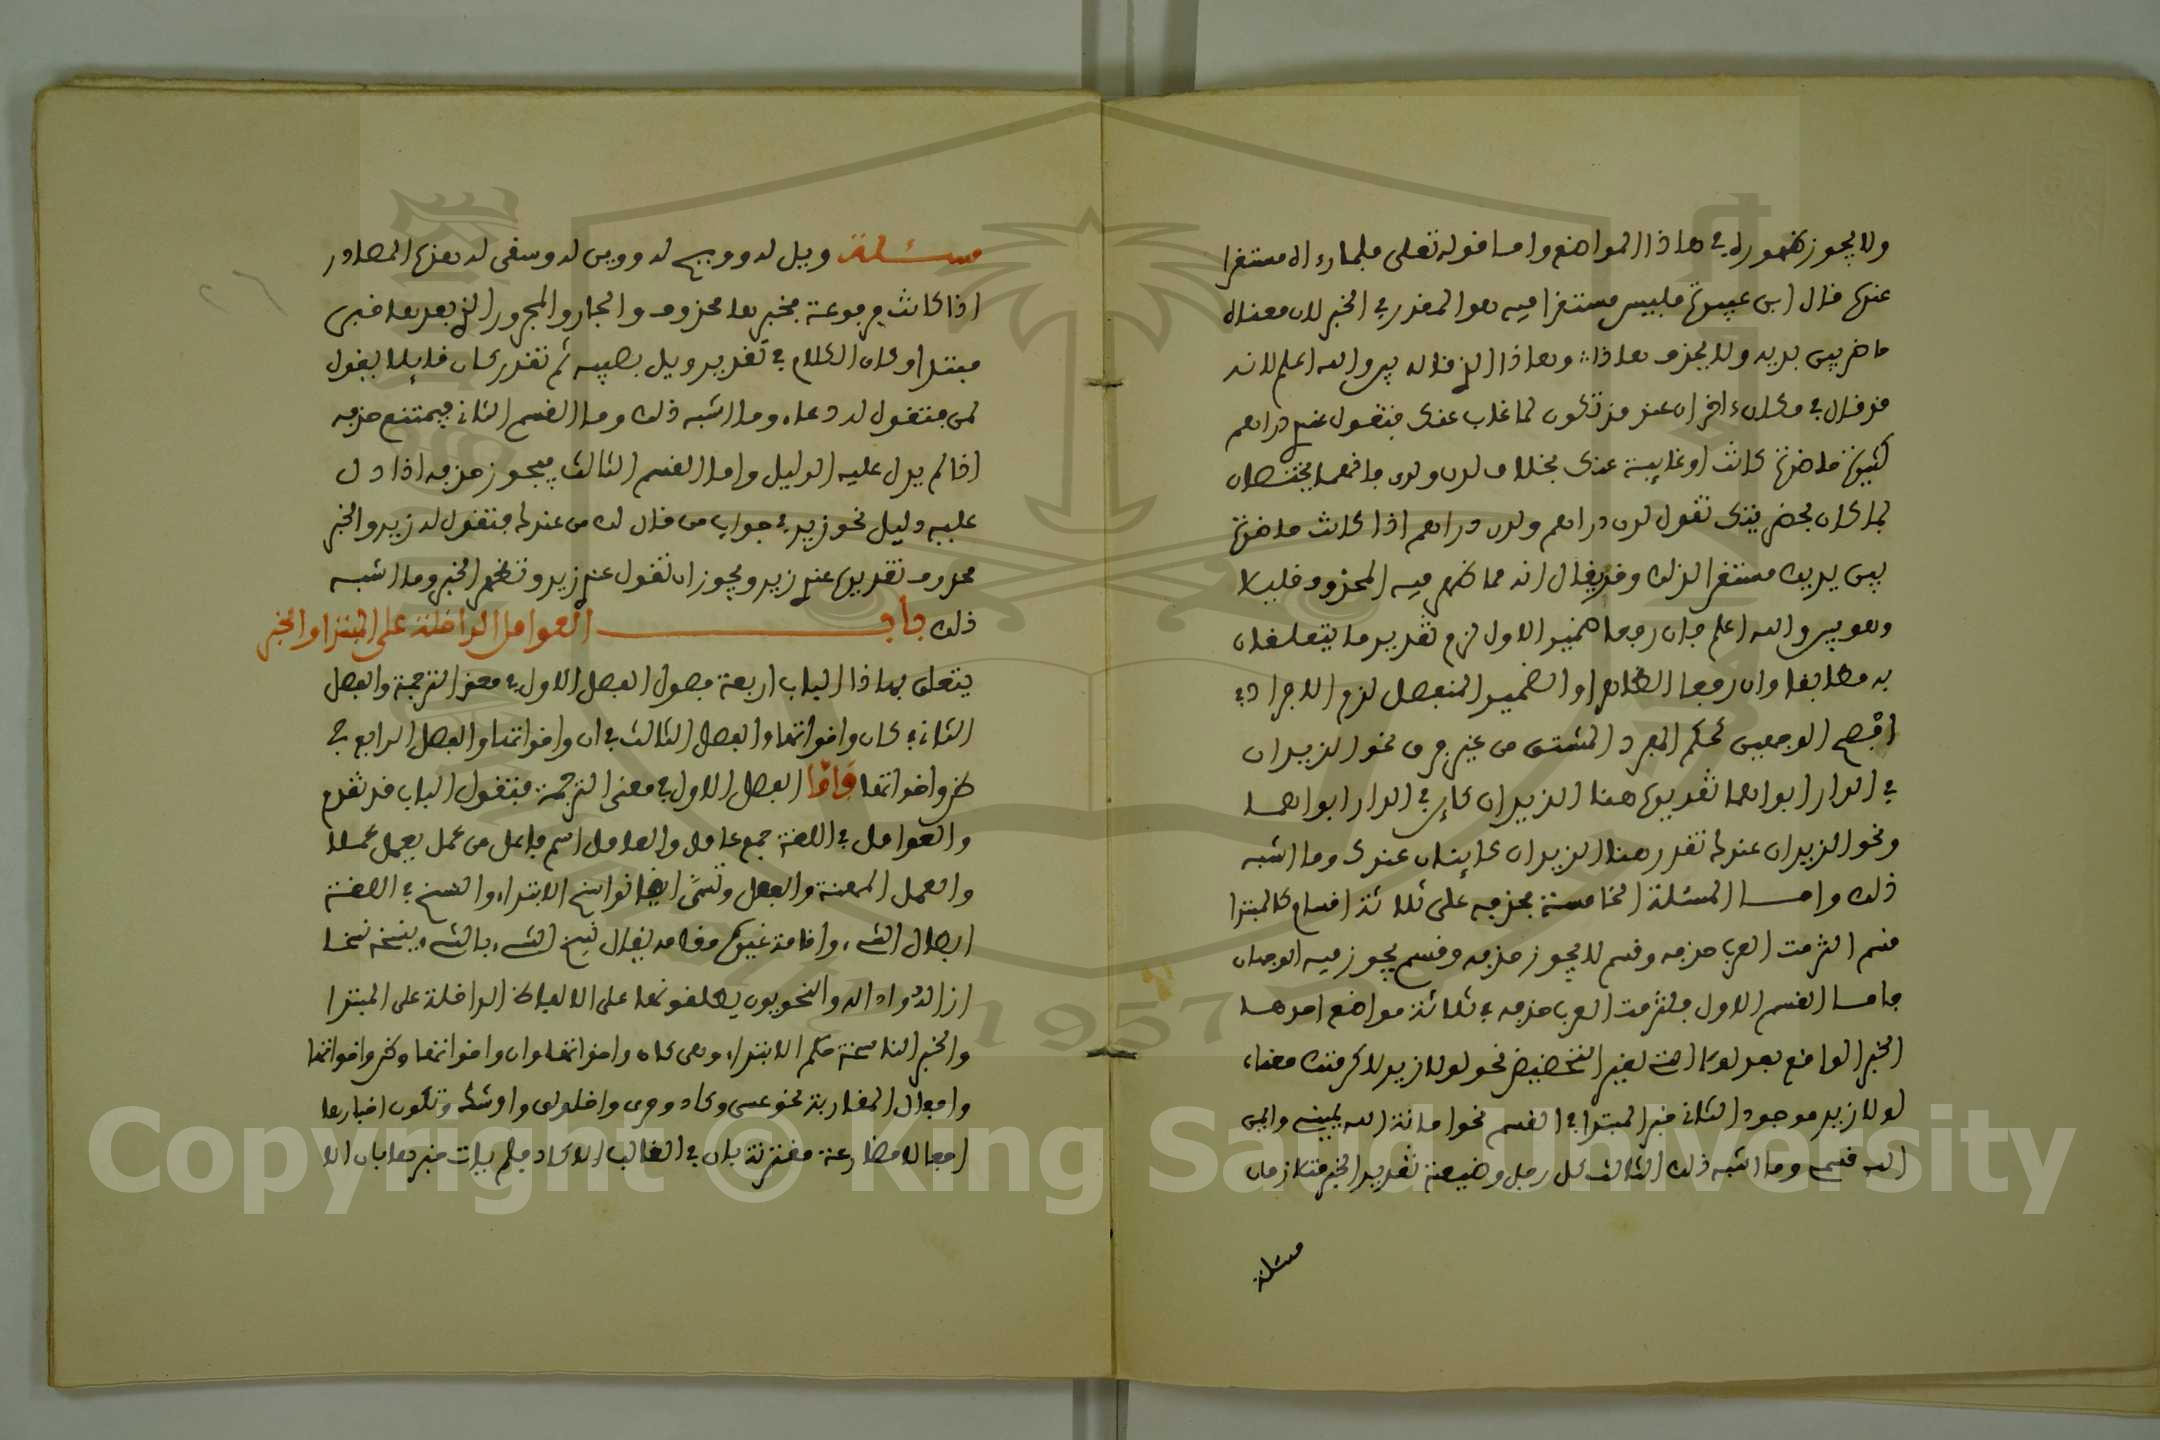 ولا يجوز ظهوره في هاذا المواضع واما قوله تعلى فلما رءاه مستقرا
عنده قال ابن عصفور فليس مستقرا فيه هو المقدر في الخبر لان معناه
وهاذا الذي قاله بين والله اعلم لانه
فتقول عندي دراهم
كثيرة حاضرة كانت او غايبة عندك بخلاف لدن ولدى فانهما يختصان
بما كان بحضرتك تقول لدن دراهم ولدى دراهم اذا كانت حاضرة
بين يديك مستقرا لذلك وقد يقال انه مما ظهر فيه المحذوف قليلا
وهو بين والله اعلم فان رفعا ضمير الاول لزم تقدير ما يتعلقان
به مطابقا وان رفعا الظاهر او الضمير المنفصل لزم الافراد في
افصح الوجهين كحكم المفرد المشتق من غير فرق نحو الزيدان
في الدار ابواهما تقديره هنا الزيدان كاين في الدار ابواهما
ونحو الزيدان عندك تقدر هنا الزيدان كاينان عندك وما اشبه
ذلك واما المسئلة الخامسة فحذفه على ثلاثة اقسام كالمبتدا
قسم التزمت العرب حذفه وقسم لا يجوز حذفه وقسم يجوز فيه الوجهان
فاما القسم الاول فالتزمت العرب حذفه في ثلاثة مواضع احدها
الخبر الواقع بعد لولا التي لغير التحضيض نحو لولا زيد لاكرمتك معناه
لولا زيد موجود الثاني خبر المبتدا في القسم نحو امانة الله يمينه وايمن
الله قسمه وما اشبه ذلك الثالث كل رجل وضيعته تقدير الخبر مقترنان
مسئلة
مسئلة ويل له وويح له وويس له وسقى له هذه المصادر
اذا كانت مرفوعة فخبرها محذوف والجار والمجرور الذي بعدها خبر
مبتدا وكان الكلام في تقدير ويل يصيبه ثم تقدر كان قايلا يقول
لمن فتقول له دعاء وما اشبه ذلك وما القسم الثاني فيمتنع حذفه
اذا لم يدل عليه الدليل واما القسم الثالث فيجوز حذفه اذا دل
عليه دليل نحو زيد في جواب من قال لك من عندك فتقول له زيد والخبر
محذوف تقديره عندي زيد ويجوز ان تقول عندي زيد وتظهر الخبر وما اشبه
ذلك باب العوامل الداخلة على المبتدا والخبر
يتعلق بهاذا الباب اربعة فصول الفصل الاول في معنى الترجمة والفصل
الثاني في كان واخواتها والفصل الثالث في ان واخواتها والفصل الرابع في
ظن واخواتها فاما الفصل الاول في معنى الترجمة فتقول الباب قد تقدم
والعوامل في اللغة جمع عامل والعامل اسم فاعل من عمل يعمل عملا
والعمل المهنة والفعل وتسمى ايضا نواسخ الابتداء والنسخ في اللغة
ابطال الشيء واقامة غيره مقامه يقال نسخ الشيء بالشيء ينسخه نسخا
ازاله وادالـه والنحويون يطلقونها على الالفاظ الداخلة على المبتدا
والخبر الناسخة حكم الابتداء وهي كان واخواتها وان واخواتها وظن واخواتها
وافعال المقاربة نحو عسى وكاد وحرى واخلولق واوشك وتكون اخبارها
افعالا مضارعة مقترنة بان في الغالب الا كاد فلم يات خبرها بان الا